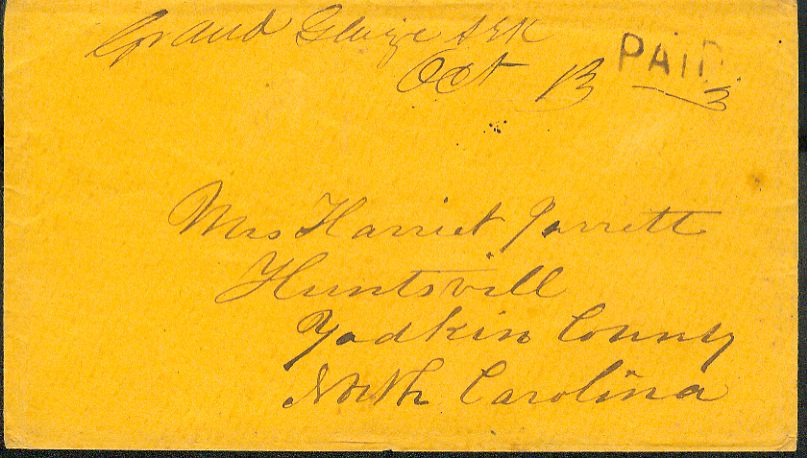 Grand Glaize ARK
Oct 13 PAID 3
Mrs Harriet Jarrett
Huntsvill
Yadkin County
North Carolina